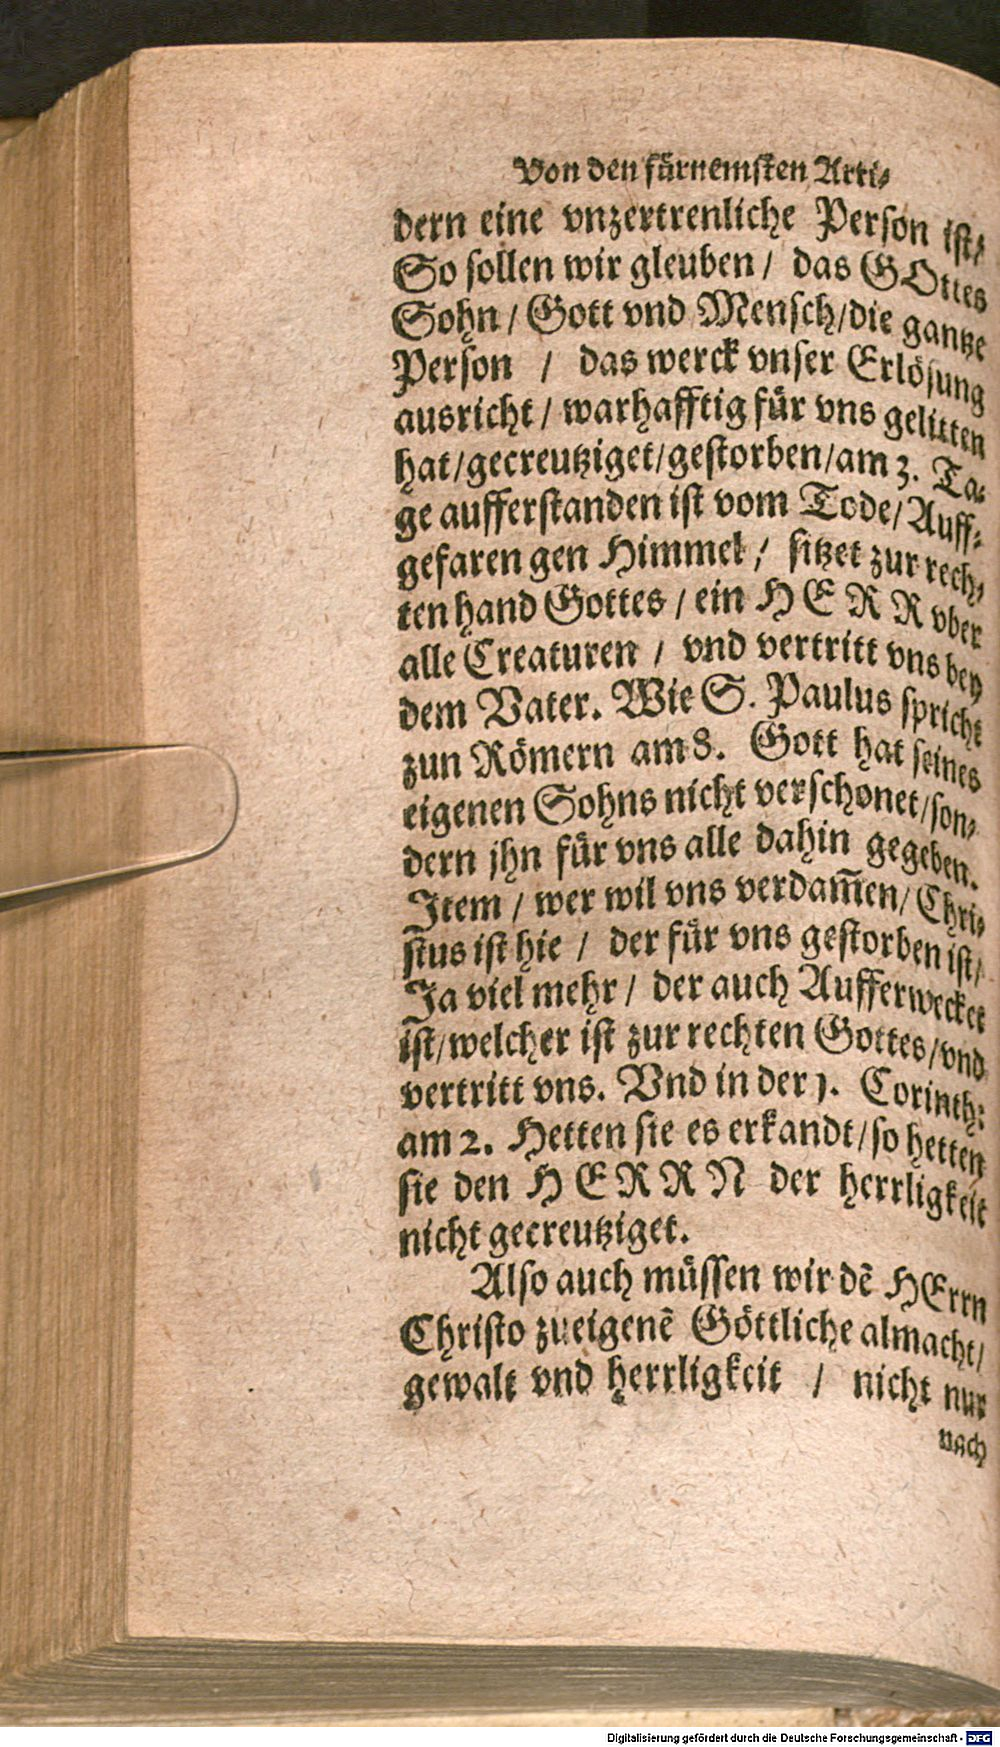 Von den fürnemsten Arti⸗
dern eine vnzertrenliche Person ist/
So sollen wir gleuben / das GOttes
Sohn / Gott vnd Mensch/die gantze
Person / das werck vnser Erlösung
ausricht / warhafftig für vns gelitten
hat/gecreutziget/gestorben/am 3. Ta⸗
ge aufferstanden ist vom Tode/Auff⸗
gefaren gen Himmel / sitzet zur rech⸗
ten hand Gottes / ein HERR vber
alle Creaturen / vnd vertritt vns bey
dem Vater. Wie S. Paulus spricht
zun Römern am 8. Gott hat seines
eigenen Sohns nicht verschonet/son⸗
dern jhn für vns alle dahin gegeben.
Item / wer wil vns verdam̄en/Chri⸗
stus ist hie / der für vns gestorben ist/
Ja viel mehr / der auch Aufferwecket
ist/welcher ist zur rechten Gottes/vnd
vertritt vns. Vnd in der 1. Corinth:
am 2. Hetten sie es erkandt/so hetten
sie den HERRN der herrligkeit
nicht gecreutziget.
Also auch müssen wir dē HErrn
Christo zueigenē Göttliche almacht/
gewalt vnd herrligkeit / nicht nur
nach
Digitalisierung gefördert durch die Deutsche Forschungsgemeinschaft - DFG